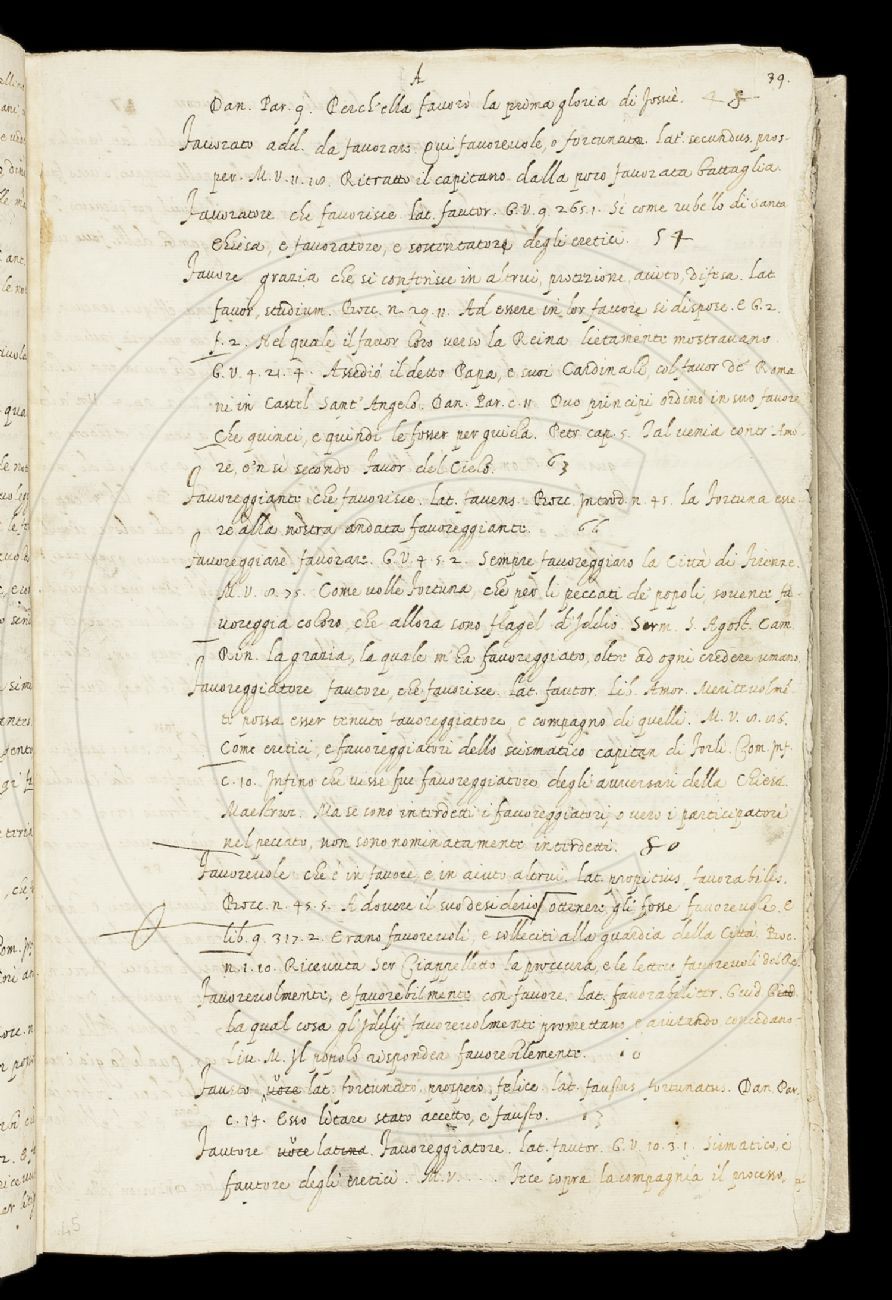 A
39.
Dan. Par. 9. Perch'ella favorò la prima gloria di Josuè.
Favorato add. da favorare. Qui favorevole, o fortunato. lat. secundus, pros-
per. M. V. 11. 18. Ritratto il capitano dalla poco favorata battaglia.
Favoratore che favorisce. lat. fautor. G. V. 9. 265. 1. Si come rubello di santa
Chiesa, e favoratore, e sostentatore degli eretici. 54
Favore grazia che si conferisce in altrui, protezione, aiuto, difesa. lat.
favor, studium. Bocc. n. 29. 11. Ad essere in lor favore si dispose. E G. 2.
f. 2. Nel quale il favor loro verso la Reina lietamente mostravano.
G. V. 4. 21. 4. Assediò il detto Papa, e suoi Cardinali, col favor de' Roma
ni in Castel Sant'Angelo. Dan. Par. c. 11. Duo principi ordinò in suo favore
Che quinci, e quindi le fosser per guida. Petr. cap. 5. Tal venia contr'Amo-
re, e'n sì secondo favor del Cielo. 63
Favoreggiante che favorisce. lat. favens. Bocc. Introd. n. 45. la fortuna esse-
re alla nostra andata favoreggiante. 66
Favoreggiare favorare. G. V. 4. 5. 2. Sempre favoreggiaro la Città di Firenze.
M. V. 10. 75. Come volle fortuna, che per li peccati de' popoli, sovente fa-
voreggia coloro, che allora sono flagel d'Iddio. Serm. S. Agost. Cam.
Rin. la grazia, la quale m'ha favoreggiato, oltre ad ogni credere umano.
Favoreggiatore fautore, che favorisce. lat. fautor. lib. Amor. Meritevolmē
te possa esser tenuto favoreggiatore e compagno di quelli. M. V.
Come eretici, e favoreggiatori dello scismatico capitan di Forlì. Com. Inf.
c. 10. Infino che visse fue favoreggiatore degli avversari della Chiesa.
Maestruz. Ma se sono interdetti i favoreggiatori, o vero i participatori
nel peccato, non sono nominatamente interdetti. 80
Favorevole che è in favore, e in aiuto altrui. lat. propitius, favorabilis.
Bocc. n. 45. 5. A dovere il suo desiderio ottenere gli fosse favorevole. E
lib. 9. 317. 2. Erano favorevoli, e solleciti alla guardia della Città. Boc.
n. 1. 10. Ricevuta Ser Ciappelletto la procura, e le lettere favorevoli del Re.
Favorevolmente, e favorebilmente con favore. lat. favorabiliter. Guid. Giud.
La qual cosa gl'Iddij favorevolmente promettano, e aiutando concedano.
Liv. M. Il popolo rispondea favorebilemente.
Fausto voce lat. fortunato, prospero, felice. lat. faustus, fortunatus. Dan. Par.
c. 14. Esso litare stato accetto, e fausto.
Fautore voce latina. Favoreggiatore. lat. fautor. G. V. 10. 3. 1. Sismatico, e
fautore degli eretici. M. V. ..... Fece sopra la compagnia il processo,
45